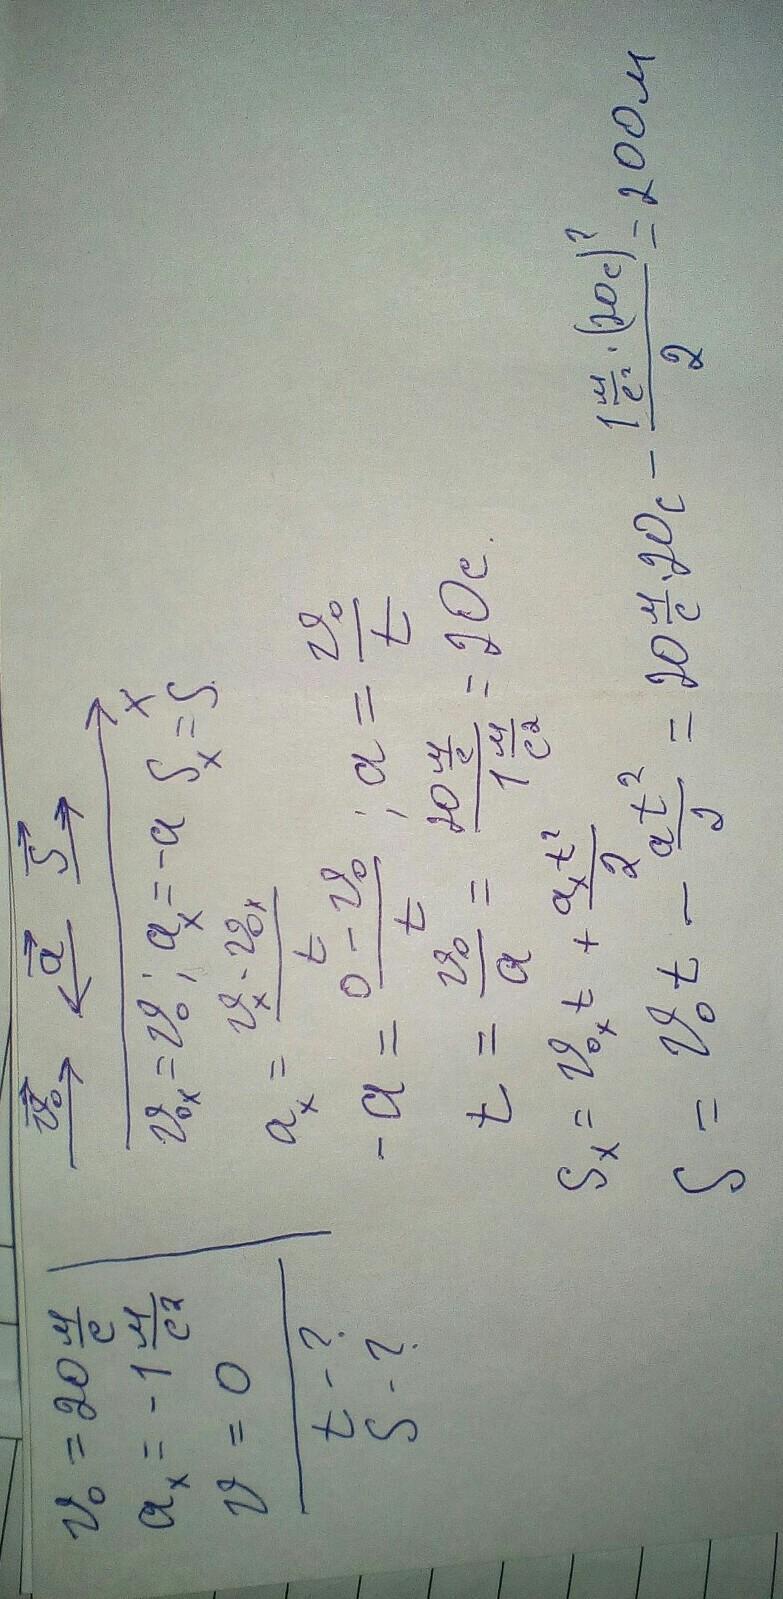 v₀ = 20 м/с
aₓ = -1 м/с²
v = 0
t - ?
S - ?
v⃗₀ a⃗ S⃗
x
v₀ₓ = v₀; aₓ = -a Sₓ = S
aₓ = (vₓ - v₀ₓ)/t
-a = (0 - v₀)/t ; a = v₀/t
t = v₀/a = (20 м/с)/(1 м/с²) = 20с.
Sₓ = v₀ₓt + aₓt²/2
S = v₀t - at²/2 = 20 м/с · 20с - (1 м/с² · (20с)²)/2 = 200м